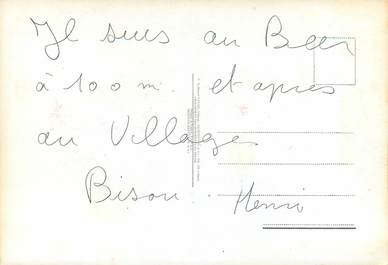 Je suis au Beer
à 100 m. et après
au Village
Bison. Henri